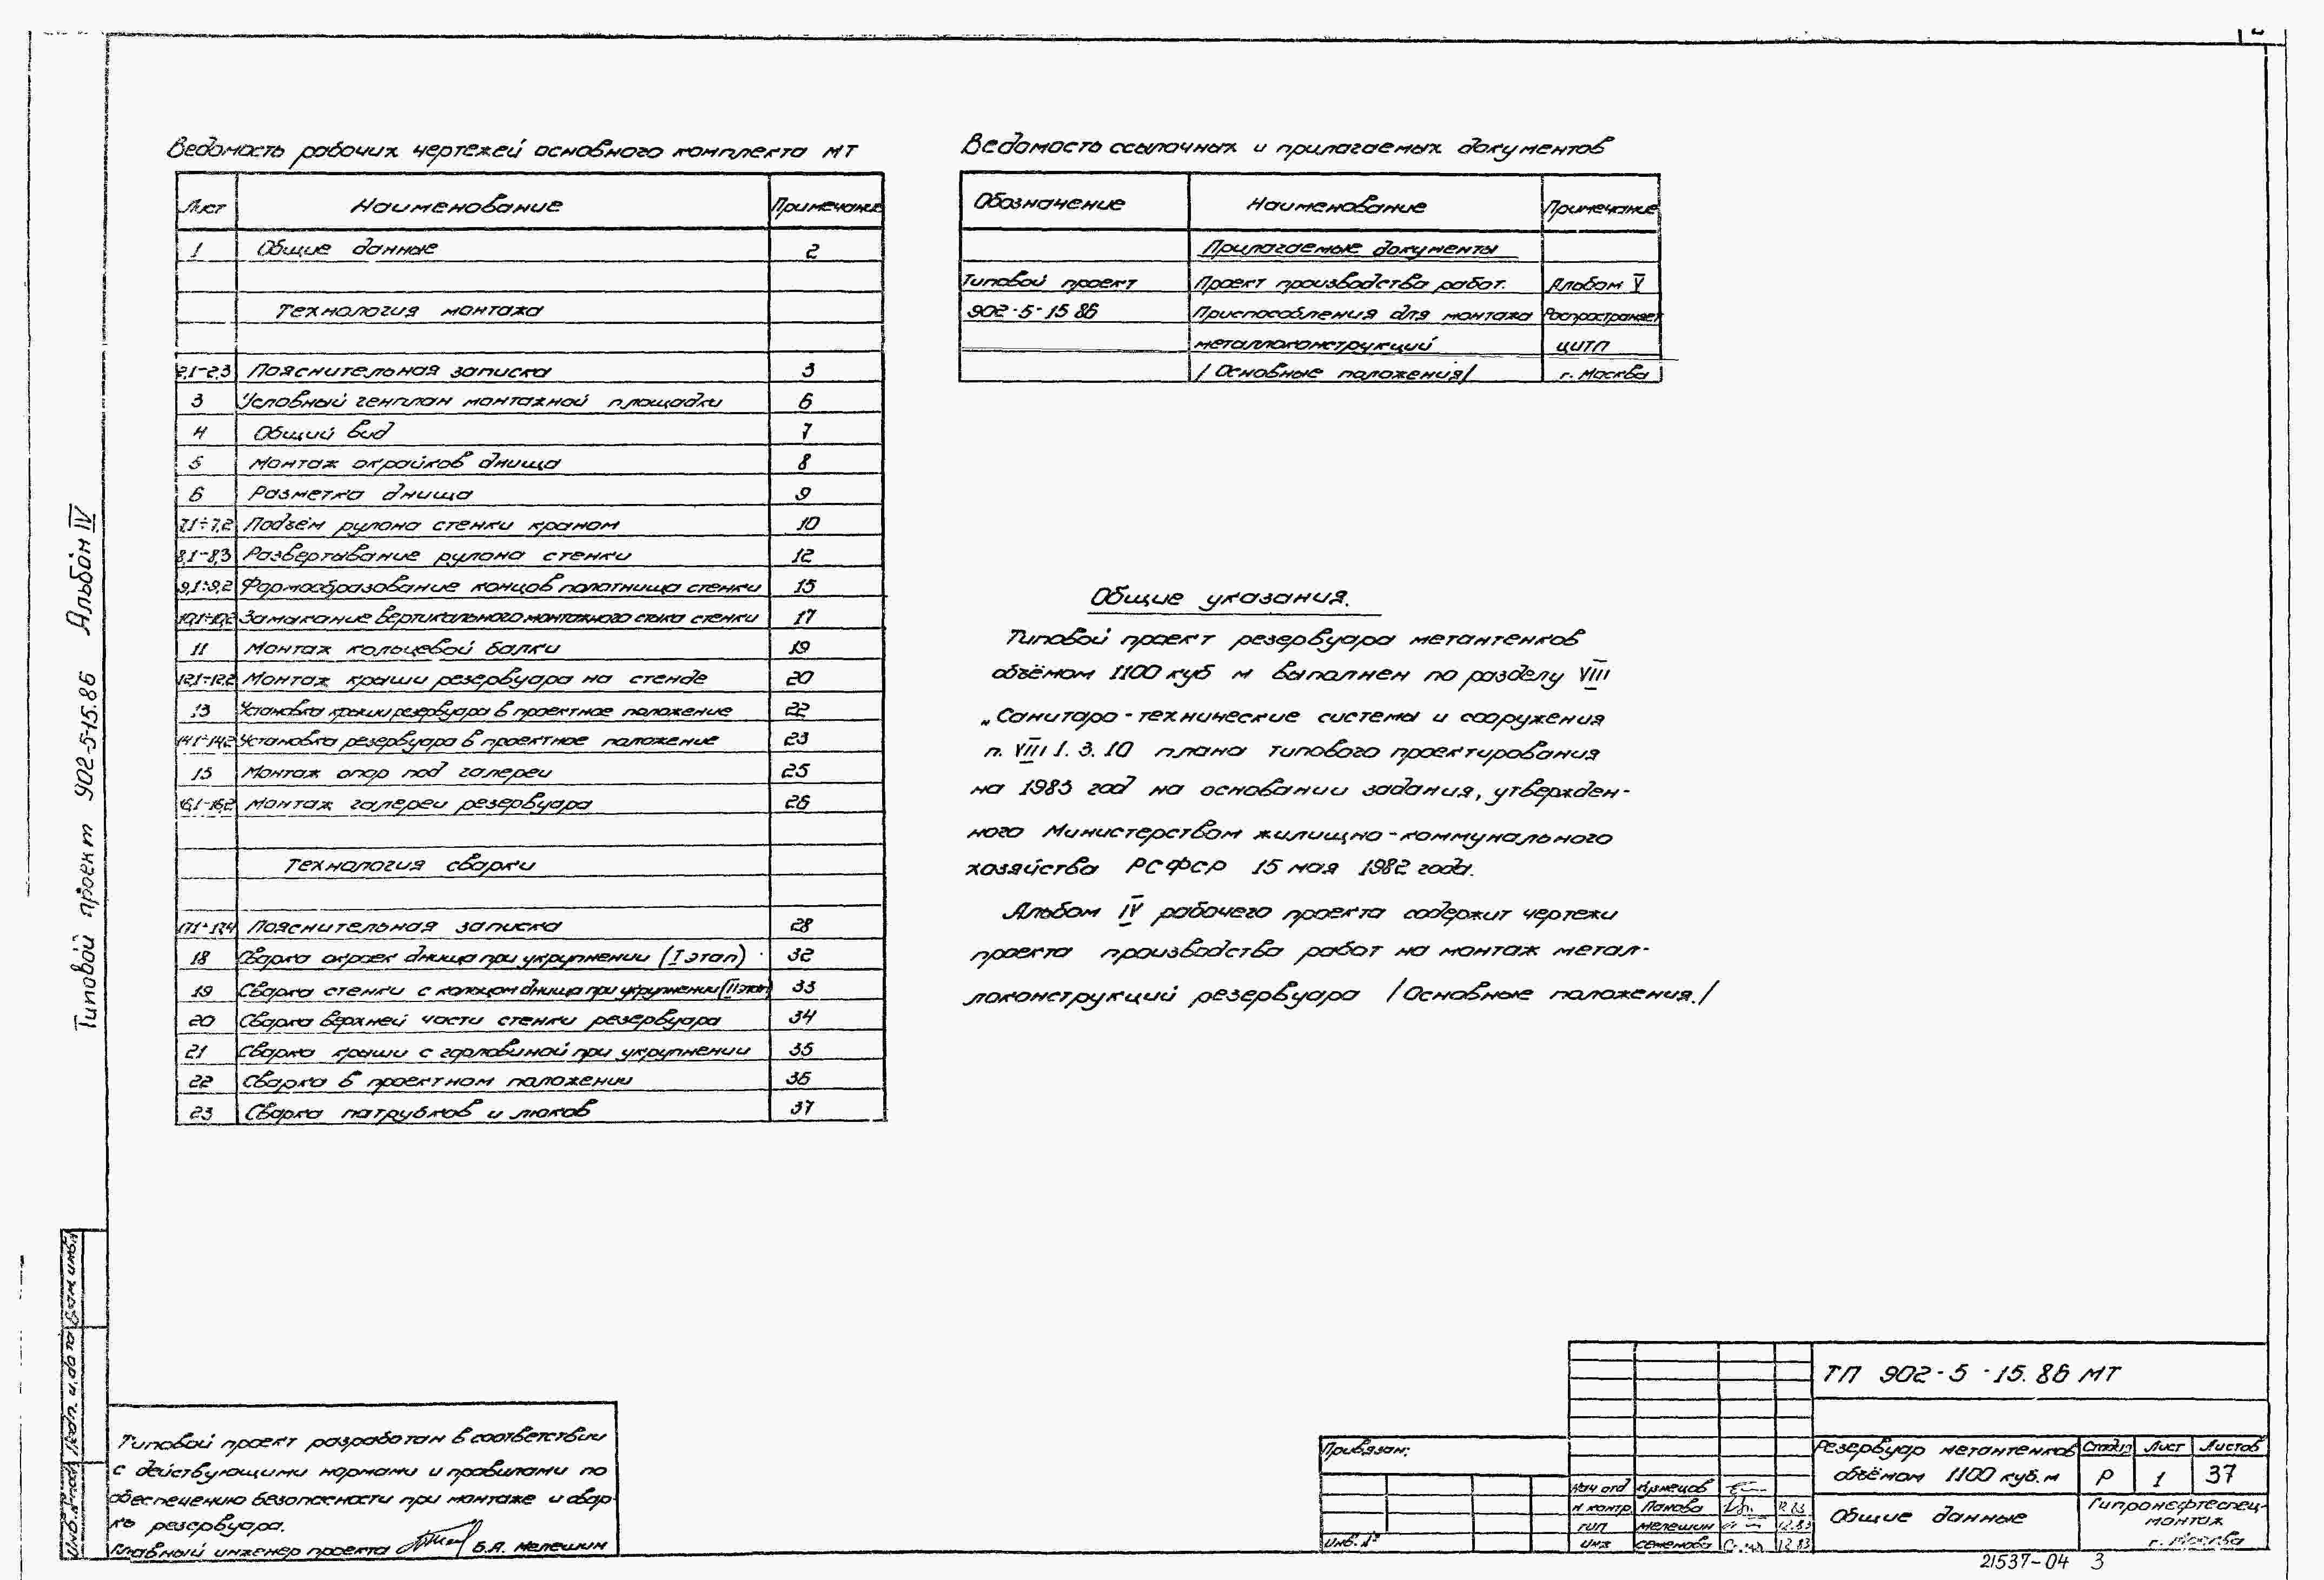 Ведомость рабочих чертежей основного комплекта МТ
Лист Наименование Примечание
1 Общие данные 2
Технология монтажа
2,1-2,3 Пояснительная записка 3
3 Условный генплан монтажной площадки 6
4 Общий вид 7
5 Монтаж окрайков днища 8
6 Разметка днища 9
7,1÷7,2 Подъём рулона стенки краном 10
8,1-8,3 Развертывание рулона стенки 12
9,1÷9,2 Формообразование концов полотнища стенки 15
10,1÷10,2 Замыкание вертикального монтажного стыка стенки 17
11 Монтаж кольцевой балки 19
12,1÷12,2 Монтаж крыши резервуара на стенде 20
13 Установка крыши резервуара в проектное положение 22
14,1÷14,2 Установка резервуара в проектное положение 23
15 Монтаж опор под галереи 25
16,1-16,2 Монтаж галереи резервуара 26
Технология сварки
17,1÷17,4 Пояснительная записка 28
18 Сварка окраек днища при укрупнении (I этап) 32
19 Сварка стенки с кольцом днища при укрупнении (II этап) 33
20 Сварка верхней части стенки резервуара 34
21 Сварка крыши с горловиной при укрупнении 35
22 Сварка в проектном положении 36
23 Сварка патрубков и люков 37
Ведомость ссылочных и прилагаемых документов
Обозначение Наименование Примечание
Прилагаемые документы
Типовой проект Проект производства работ. Альбом V
902-5-15 86 Приспособления для монтажа Распространяет
металлоконструкций ЦИТП
/Основные положения/ г. Москва
Общие указания.
Типовой проект резервуара метантенков
объёмом 1100 куб м выполнен по разделу VIII
„Санитаро-технические системы и сооружения
п. VIII 1. 3. 10 плана типового проектирования
на 1983 год на основании задания, утвержден-
ного Министерством жилищно-коммунального
хозяйства РСФСР 15 мая 1982 года.
Альбом IV рабочего проекта содержит чертежи
проекта производства работ на монтаж метал-
локонструкций резервуара /Основные положения./
Типовой проект 902-5-15.86 Альбом IV
Взам. инв.
Подп. и дата
Инв. № подл
Типовой проект разработан в соответствии
с действующими нормами и правилами по
обеспечению безопасности при монтаже и свар-
ке резервуара.
Главный инженер проекта Б.А. Мелешин
Привязан:
Инв. №
Нач отд Кузнецов
Н контр Панова 12.83
ГИП Мелешин 12.83
Инж Семенова 12.83
ТП 902-5-15.86 МТ
Резервуар метантенков
объёмом 1100 куб.м
Стадия Лист Листов
Р 1 37
Общие данные
Гипронефтеспец-
монтаж
г. Москва
21537-04 3